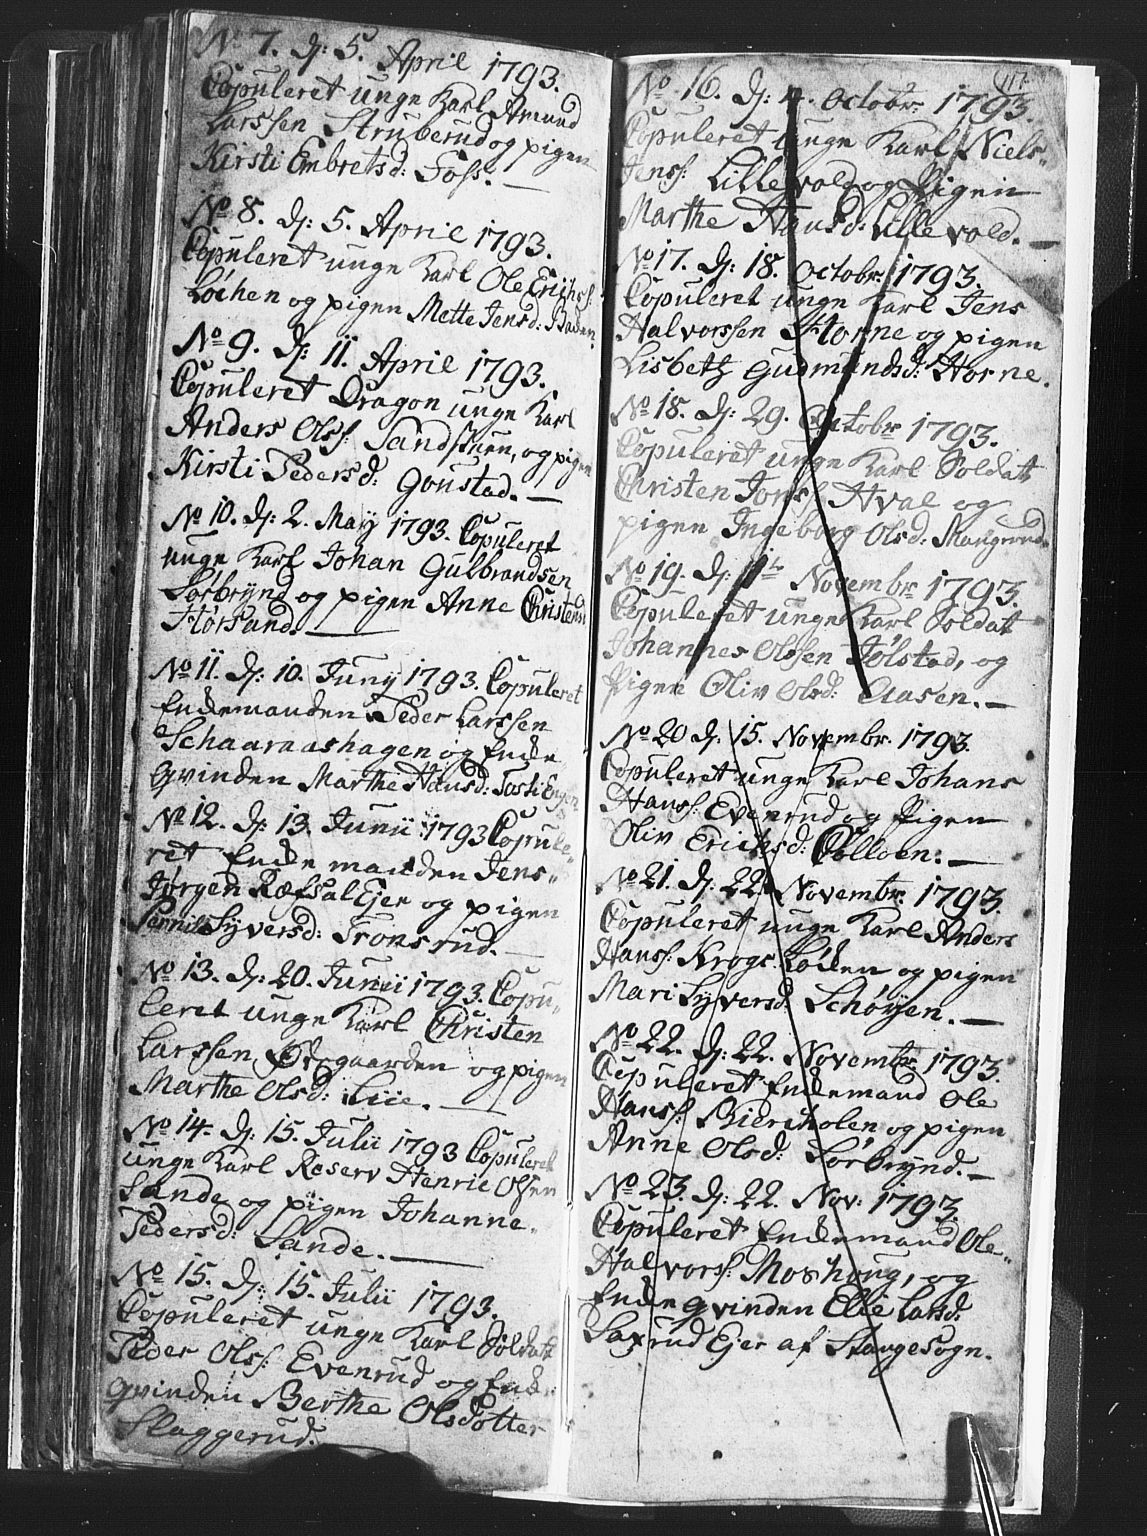 No 7. d: 5. April 1793.
Copuleret unge Karl Amund
Larssen Struberud og pigen
Kirsti Embretsd: Foss. —
No 8. d: 5. April 1793.
Copuleret unge Karl Ole Erichs:
Løchen og pigen Mette Jensd:
No 9. d: 11. April 1793.
Copuleret Dragon unge Karl
Anders Olss: Sandstuen, og pigen
Kirsti Pedersd: Goustad. —
No 10. d: 2. May 1793. Copuleret
unge Karl Johan Gulbrandsen
Sørbrynd og pigen Anne Christensd:
Hørsand. —
No 11. d: 10. Juny 1793. Copuleret
Enkemanden Peder Larssen
Schaaraashagen og Enke
qvinden Marthe Hansd:
No 12. d: 13. Junii 1793 Copule-
ret Enkemanden Jens-
Jørgen Ræfsal Ejer og pigen
Pernil Syversd: Fronsrud. —
No 13. d: 20. Junii 1793. Copu-
leret unge Karl Christen
Larssen Østgaarden og pigen
Marthe Olsd: Liie. —
No 14. d: 15. Julii 1793 Copuleret
unge Karl Reserv Henric Olsen
Sande og pigen Johanne
Pedersd: Sande. —
No 15. d: 15. Julii 1793.
Copuleret unge Karl Soldatt
Peder Olss: Evenrud og Enke
qvinden Berthe Olsdotter
Slaggerud.
117.
No 16. d: 4. Octobr: 1793.
Copuleret unge Karl Niels-
Jenss: Lillevold og Pigen
Marthe Hansd: Lillevold. —
No 17. d: 18. Octobr: 1793.
Copuleret unge Karl Jens
Halvorssen Horne og pigen
Lisbeth Gudmundsd: Horne.
No 18. d: 29. Octobr: 1793.
Copuleret unge Karl Soldatt
Christen Jonss: Hval og
pigen Ingeborg Olsd: Mangerud.
No 19. d: Novembr: 1793.
Copuleret unge Karl Soldatt
Johannes Olssen Jølstad, og
Pigen Oliv Olsd: Aasen. —
No 20 d: 15. Novembr: 1793.
Copuleret unge Karl Johans
Hanss: Evenrud og Pigen
Oliv Erichsd: —
No 21. d: 22. Novembr: 1793.
Copuleret unge Karl Anders
Hanss: Krogs Løken og pigen
Mari Syversd: Schøyen. —
No 22. d: 22. Novembr: 1793.
Copuleret Enkemand Ole
Hanss: Biercholen og pigen
Anne Olsd: Sørbrynd. —
No 23. d: 22. Nov: 1793.
Copuleret Enkemand Ole-
Halvorss: Moshoug, og
Enkeqvinden Elie Larsd:
Saxrud Ejer af Stange Sogn.